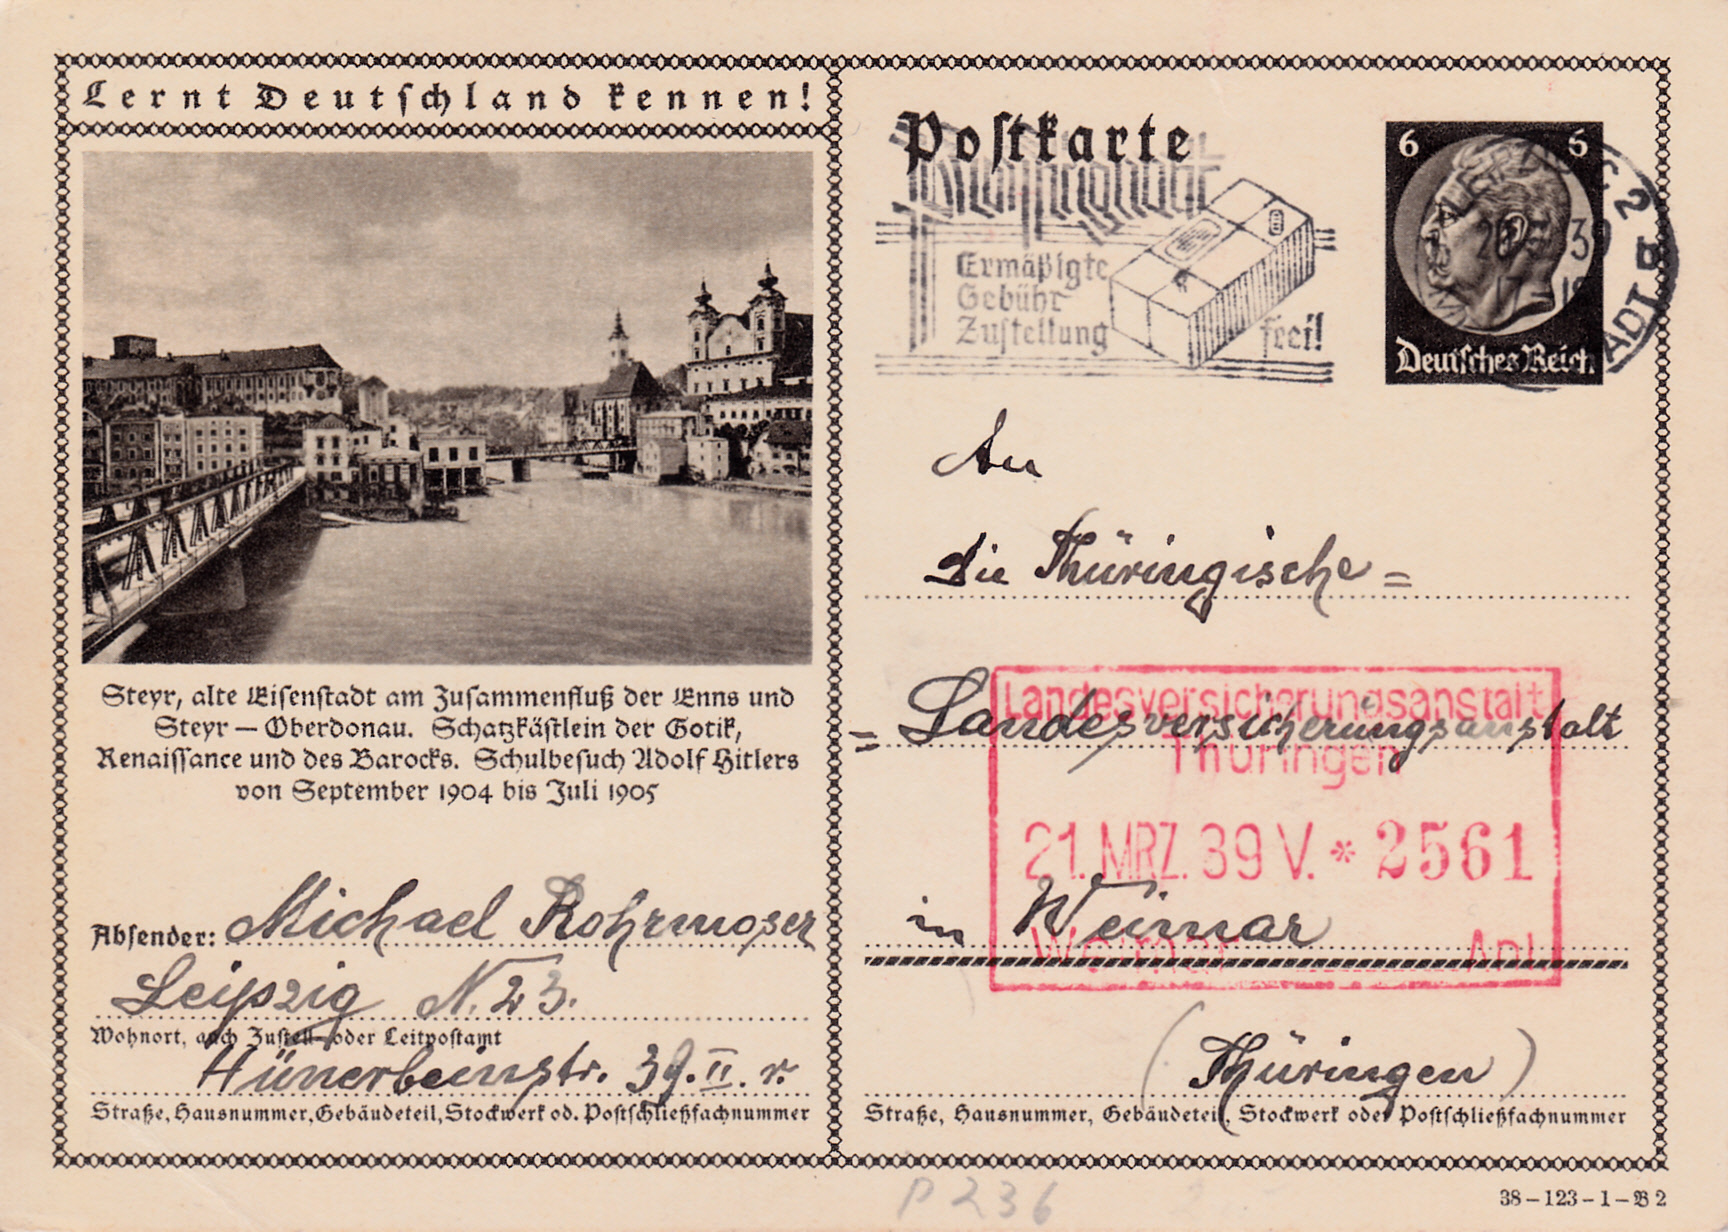 Lernt Deutschland kennen!
Steyr, alte Eisenstadt am Zusammenfluß der Enns und
Steyr – Oberdonau. Schatzkästlein der Gotik,
Renaissance und des Barocks. Schulbesuch Adolf Hitlers
von September 1904 bis Juli 1905
Absender: Michael Rohrmoser
Leipzig N. 23.
Wohnort, auch Zustell- oder Leitpostamt
Hünerbeinstr. 39. II. r.
Straße, Hausnummer, Gebäudeteil, Stockwerk od. Postschließfachnummer
Postkarte
Ermäßigte
Gebühr
Zustellung frei!
6 6
Deutsches Reich
An
Die Thüringische =
= Landesversicherungsanstalt
in Weimar
(Thüringen)
Landesversicherungsanstalt
Thüringen
21. MRZ. 39 V. * 2561
Weimar
Straße, Hausnummer, Gebäudeteil, Stockwerk oder Postschließfachnummer
P 236
38 – 123 – 1 – B 2